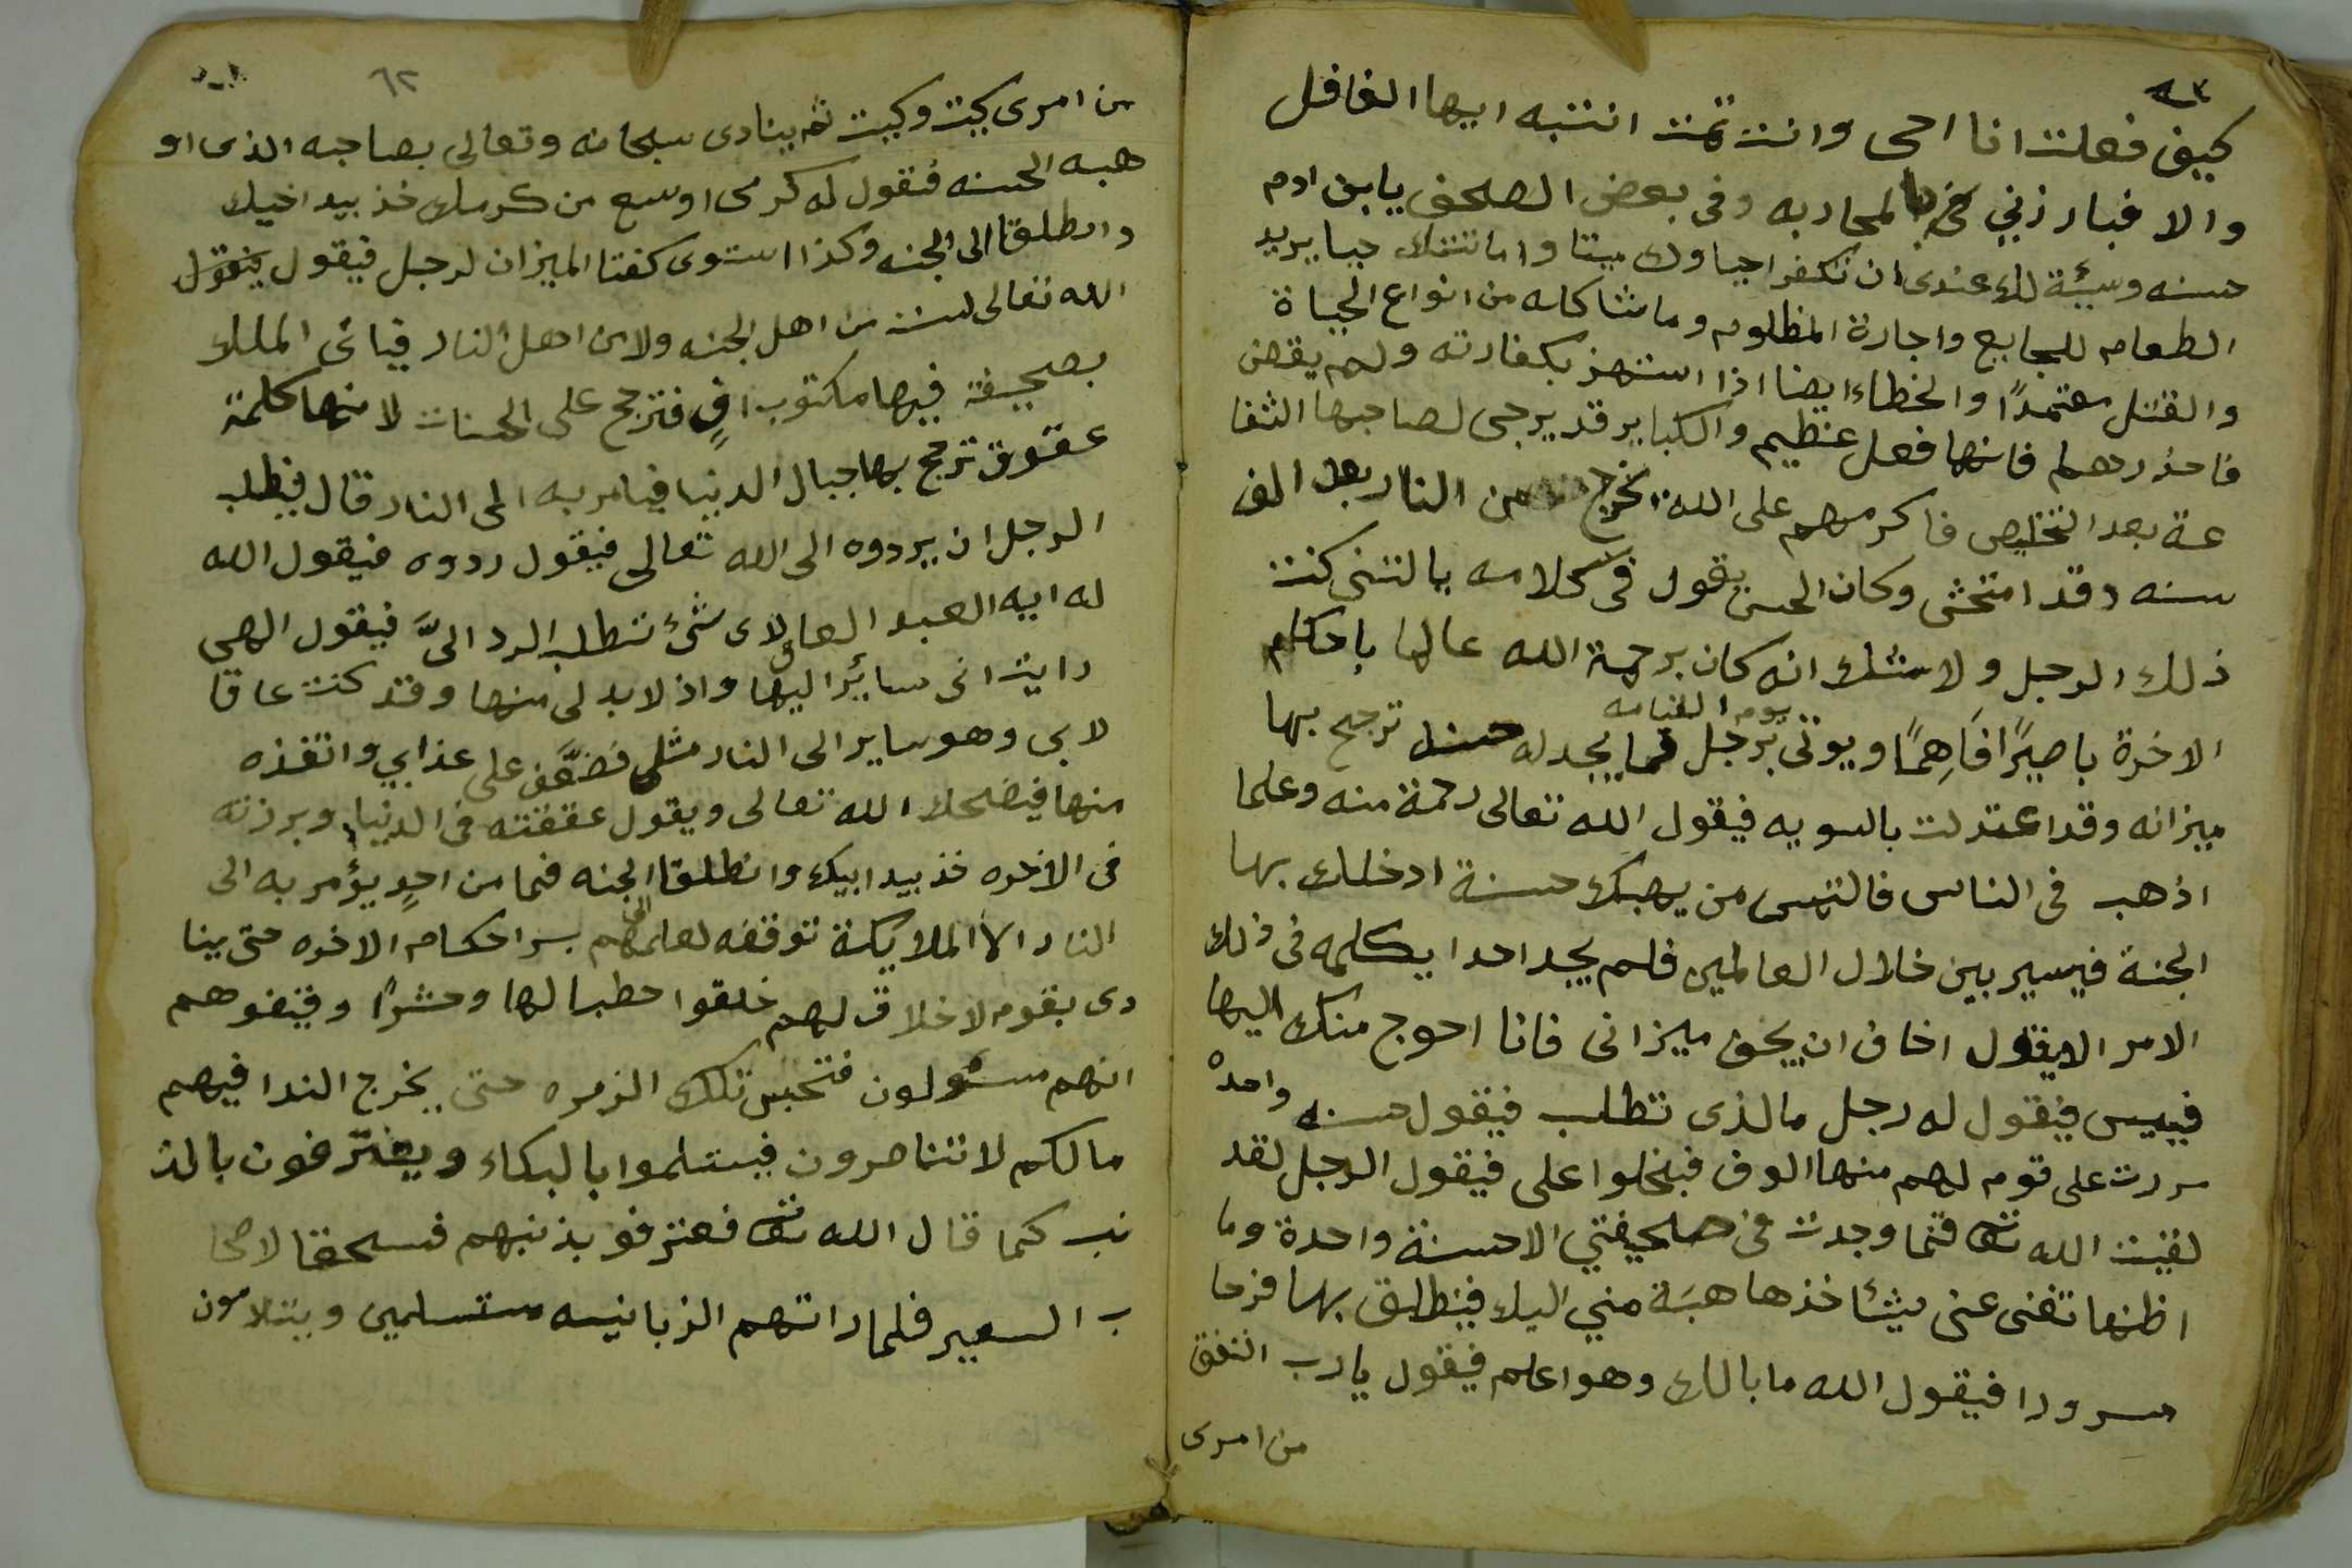 كيف فعلت انا احى وانت تمت انتبه ايها الغافل
والا فبارزني بالمحاربه وفى بعض الصحف يابن ادم
حسنه وسيئة لك عندى ان تكفر احياوك ميتا واماتتك حيا يريد
الطعام للجايع واجارة المظلوم وما شاكله من انواع الحياة
والقتل معتمدًا والخطاء ايضا اذا استهز بكفارته ولم يقض
فاحذرهم فانها فعل عظيم والكباير قد يرجى لصاحبها الشفا
عة بعد التخليص فاكرمهم على الله يخرج من النار بعد الف
سنه وقد امتحشى وكان الحسن يقول فى كلامه ياليتنى كنت
ذلك الرجل ولا شك انه كان برحمة الله عالما باحكام
يوم القيامه
الاخرة باصيرًا فاهمًا ويوتى برجل فما يجد له حسنه ترجح بها
ميزانه وقد اعتدلت بالسويه فيقول الله تعالى رحمة منه وعلما
اذهب فى الناس فالتمس من يهبك حسنة ادخلك بها
الجنة فيسير بين خلال العالمين فلم يجد احدا يكلمه فى ذلك
الامر الا يقول اخاف ان يخف ميزانى فانا احوج منك اليها
فييس فيقول له رجل ما الذى تطلب فيقول حسنه واحده
مررت على قوم لهم منها الوف فبخلوا على فيقول الرجل لقد
لقيت الله تعا فما وجدت فى صحيفتي الا حسنة واحدة وما
اظنها تغنى عنى شيئا خذها هبة مني اليك فينطلق بها فرحا
مسرورا فيقول الله ما بالك وهو اعلم فيقول يا رب اتفق
من امرى
٦٢
من امرى كيت وكيت ثم ينادى سبحانه وتعالى بصاحبه الذى او
هبه الحسنه فيقول له كرمى اوسع من كرمك خذ بيد اخيك
وانطلقا الى الجنه وكذا استوى كفتا الميزان لرجل فيقول
الله تعالى لست من اهل الجنه ولا من اهل النار فياتى الملك
بصحيفة فيها مكتوب افٍ فترجح على الحسنات لانها كلمة
عقوق ترجح بها جبال الدنيا فيامر به الى النار قال فيطلب
الرجل ان يردوه الى الله تعالى فيقول ردوه فيقول الله
له ايه العبد العاق لاى شئ تطلب الرد الىَّ فيقول الهي
رايت انى سائرًا اليها واذ لابد لى منها وقد كنت عاقا
لابي وهو ساير الى النار مثلى فضعّف على عذابي وانقذه
منها فيضحك الله تعالى ويقول عققته فى الدنيا وبرزته
فى الاخره خذ بيد ابيك وانطلقا الجنه فما من احدٍ يؤمر به الى
النار الا الملايكة توقفه لعلمهم بسر احكام الاخره حتى ينا
دى بقوم لا خلاق لهم خلقوا حطبا لها وحشوًا وقفوهم
انهم مسئولون فتحبس تلك الزمره حتى يخرج الندا فيهم
مالكم لا تناصرون فيستلموا بالبكاء ويعترفون بالذ
نب كما قال الله تعا فعترفو بذنبهم فسحقا لاصحا
ب السعير فلما راتهم الزبانيه مستسلمين ويتلامون